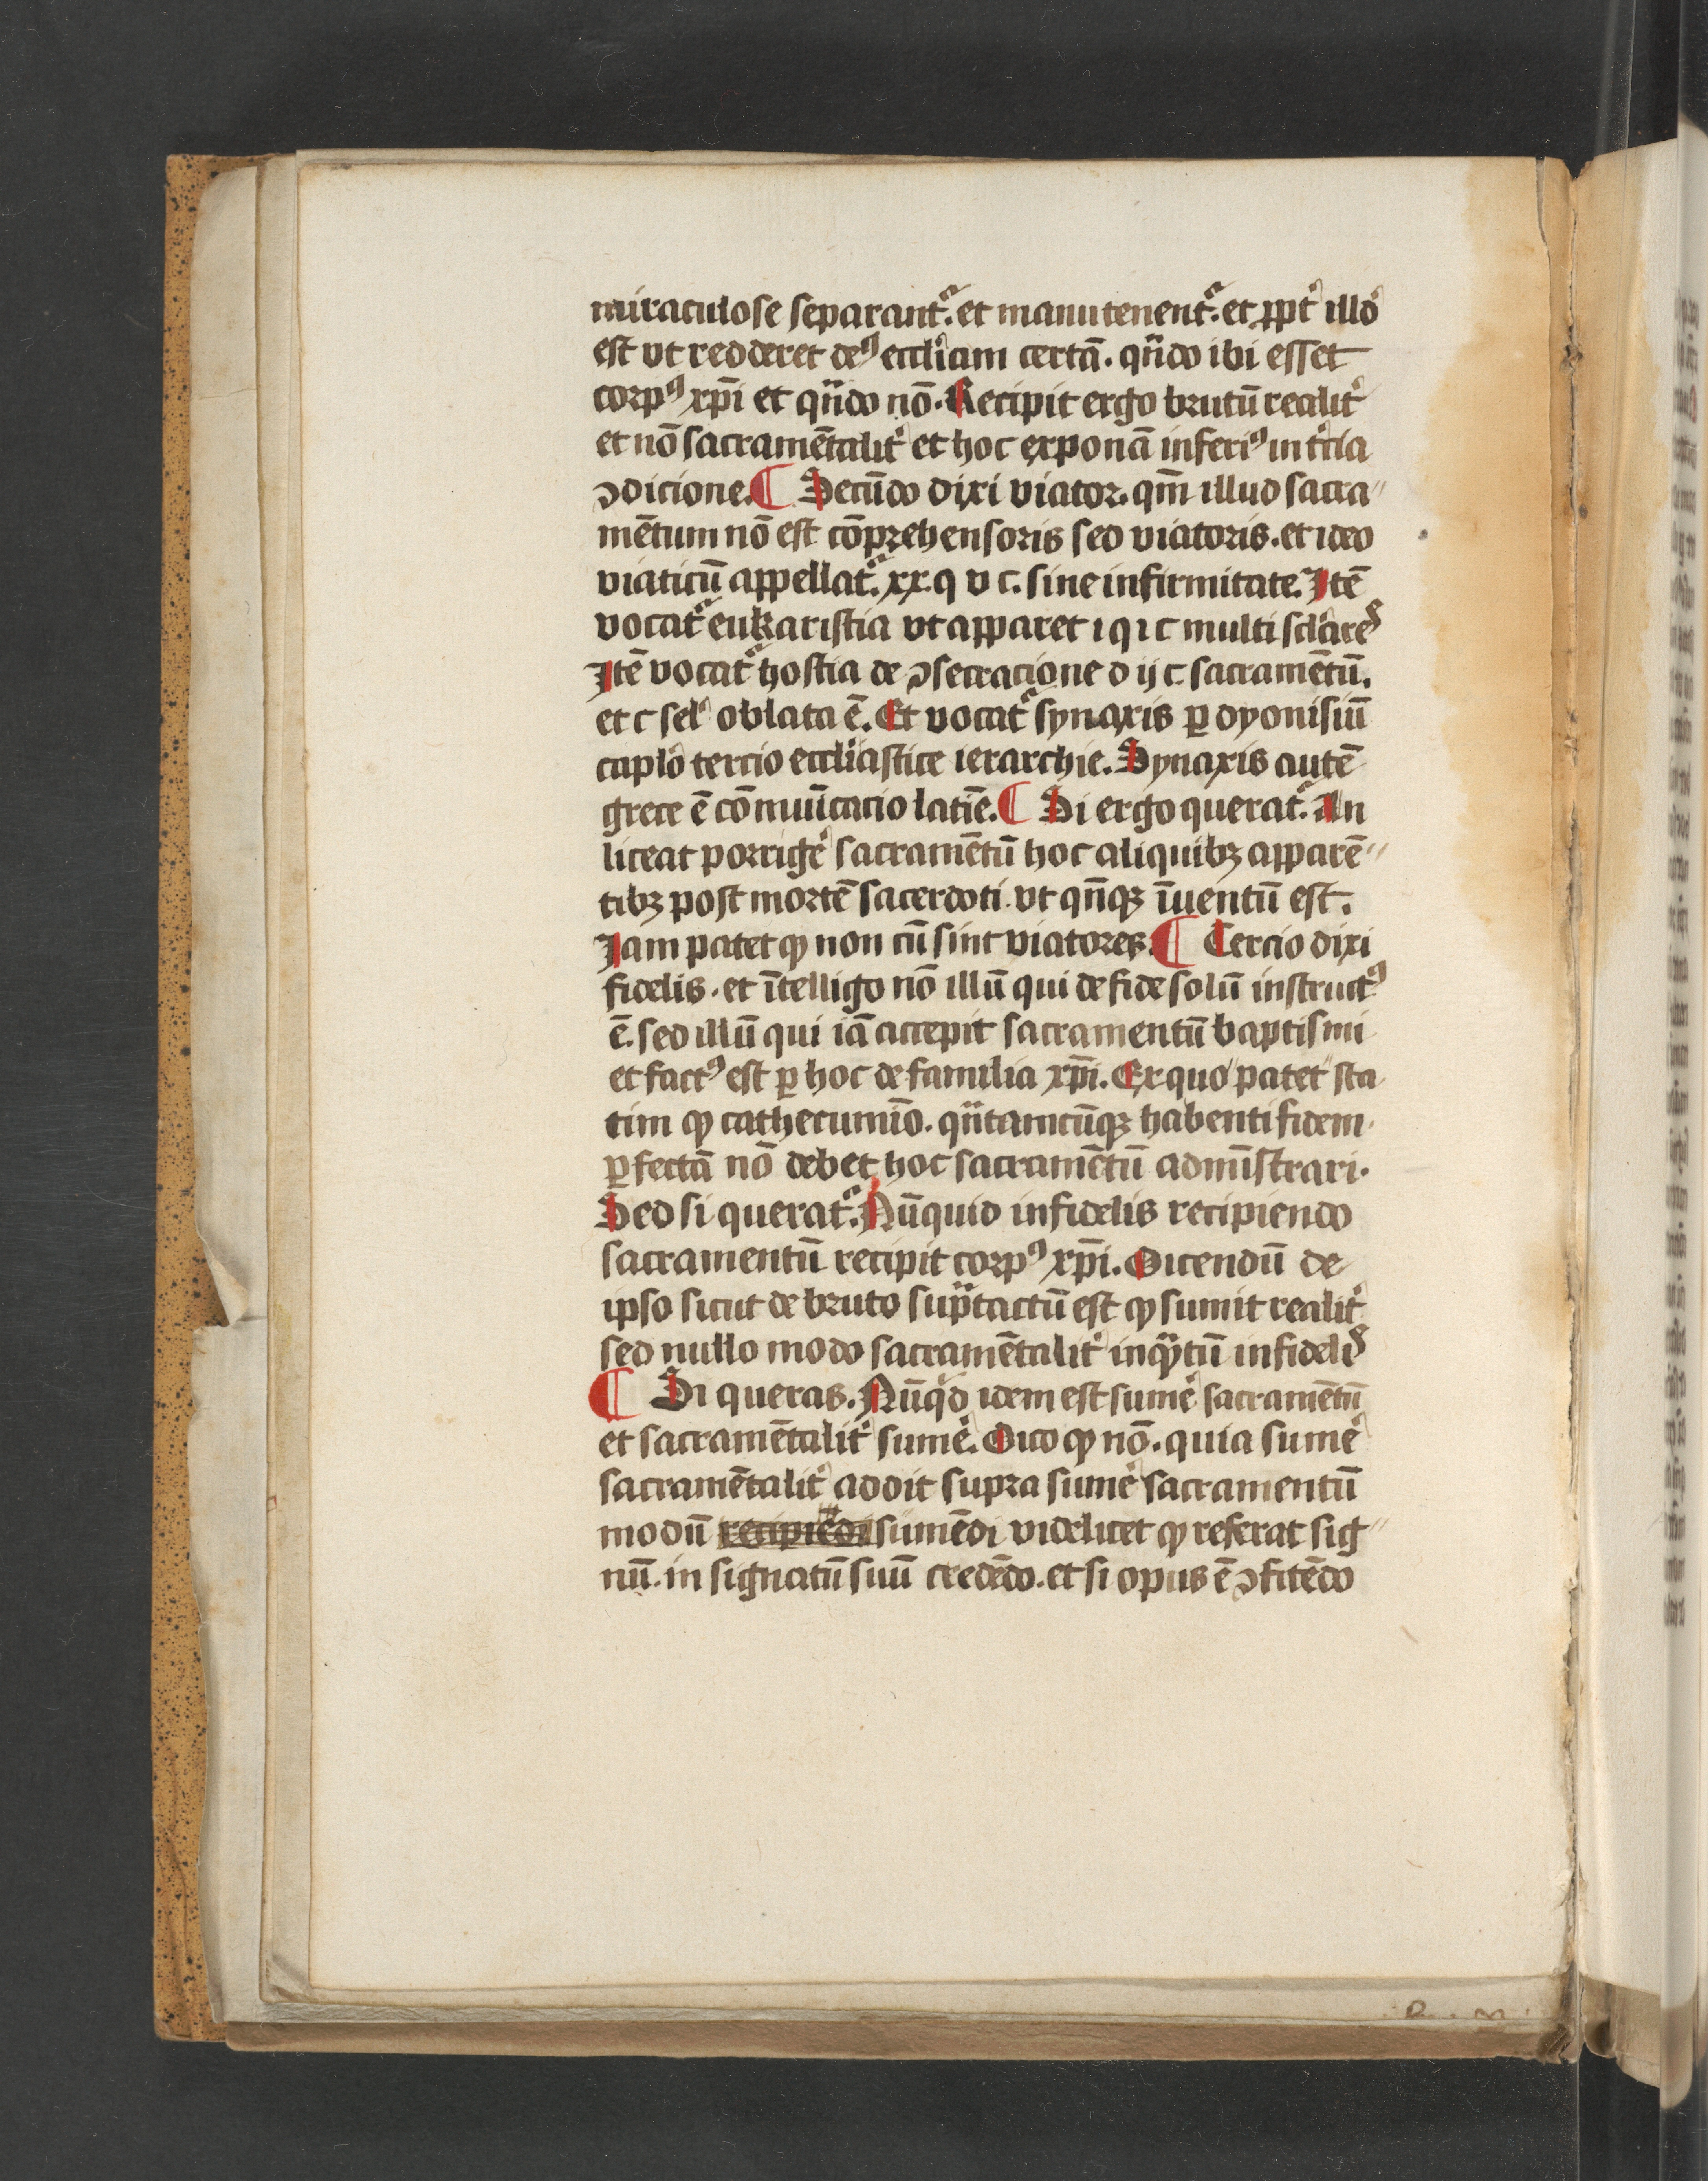 miraculose separant᷑. et manutenent᷑. et ꝓpt᷑ illđ
est vt redderet deꝰ eccl̓iam certā. qn̄do ibi esset
corpꝰ xp̄i et qn̄do nō. Recipit ergo brutū realit᷑
et nō sacramētalit᷑ et hoc exponā inferiꝰ in t᷑cia
ꝯdicione. ¶ Secūdo dixi viator. qm̄ illud sacra〃
mētum nō est cōprehensoris sed viatoris. et ideo
viaticū appellat᷑. xx. q v c. sine infirmitate. Itē
vocat᷑ eukaristia vt apparet ı q ı c multi scl̓are
Itē vocat᷑ hostia de ꝯsecracione d ij c. sacramētū.
et c sel᷑ oblata ē. Et vocat᷑ synaxis ꝑ dyonisiū
caplo᷑ tercio eccl̓iastice ierarchie. Synaxis autē
grece ē cōmuīcacio latīe. ¶ Si ergo querat᷑. An
liceat porrige᷑ sacramētū hoc aliquibꝫ apparē〃
tibꝫ post mortē sacerdoti. vt qn̄qꝫ īuentū est.
Iam patet ꝙ non cū sint viatores. ¶ Tercio dixi
fidelis. et ītelligo nō illū qui de fide solū instructꝰ
ē. sed illū qui iā accepit sacramentū baptismi
et factꝰ est ꝑ hoc de familia xp̄i. Ex quo patet sta
tim ꝙ cathecumīo. qn̄tamcūqꝫ habenti fidem
ꝑfectā nō debet hoc sacramētū admīstrari.
Sed si querat᷑. Nūquid infidelis recipiendo
sacramentū recipit corpꝰ xp̄i. Dicendū de
ipso sicut de bruto sup᷑tactū est ꝙ sumit realit᷑
sed nullo modo sacramētalit᷑ inqᷓtū infidelis
¶ Si queras. Nūqͥd idem est sume᷑ sacramētū
et sacramētalit᷑ sume᷑. Dico ꝙ nō. quia sume᷑
sacramētalit᷑ addit supra sume᷑ sacramentū
modū recipiēdi sumēdi videlicet ꝙ referat sig〃
nū. in signatū suū credēdo. et si opus ē ꝯfitēdo